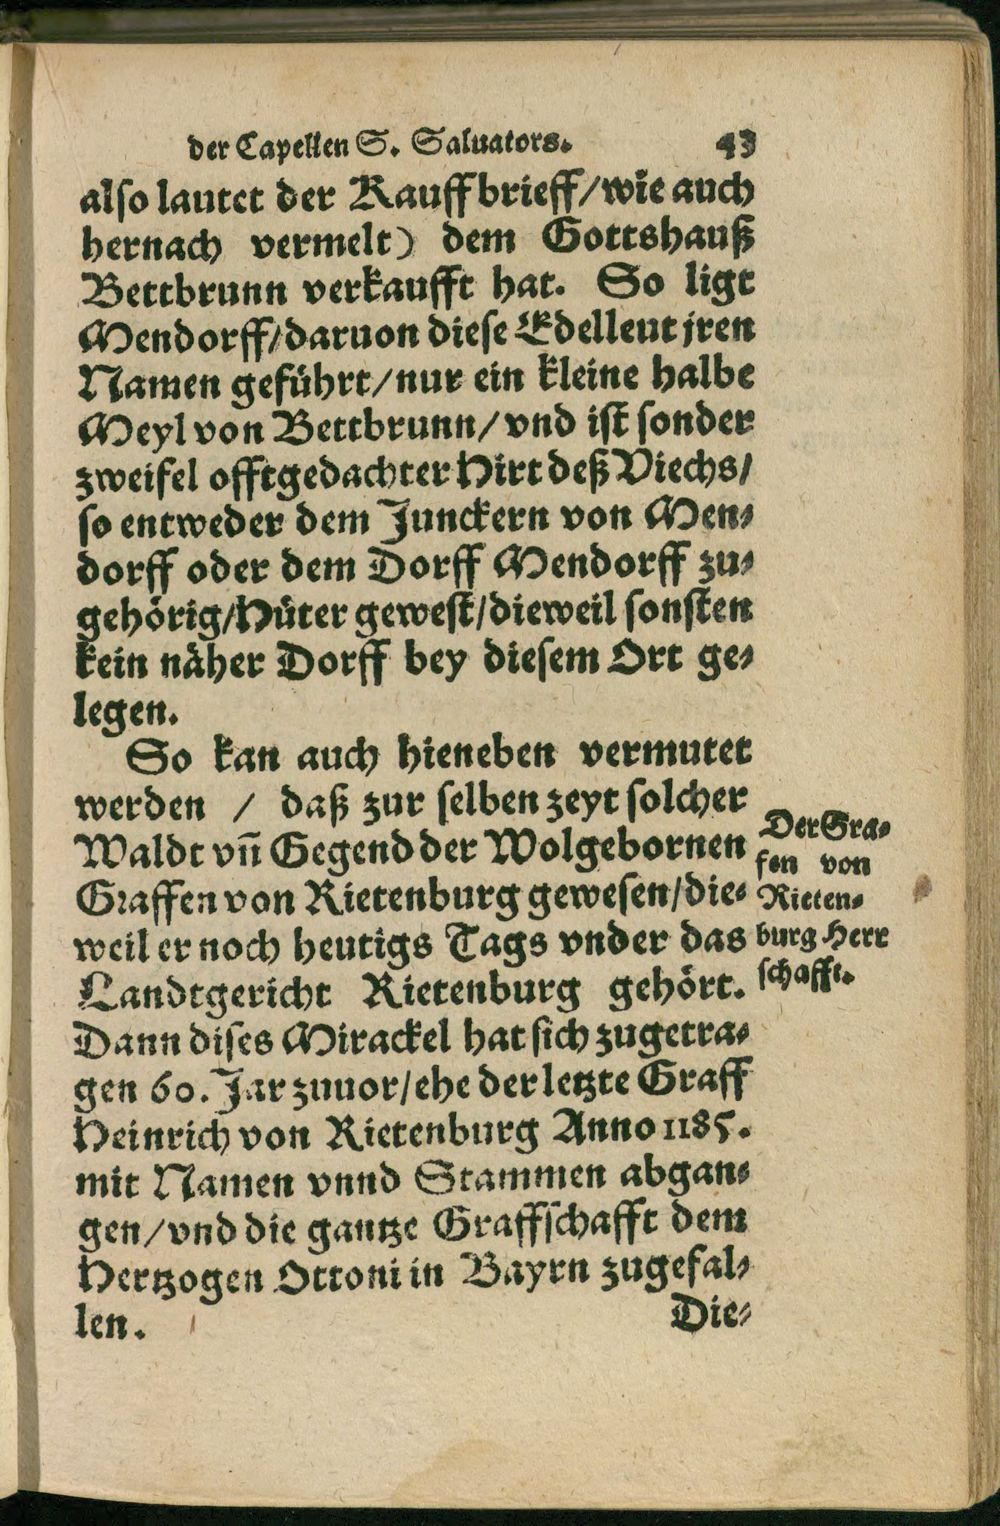 der Capellen S. Saluators. 43
also lautet der Kauffbrieff/wie auch
hernach vermelt) dem Gottshauß
Bettbrunn verkaufft hat. So ligt
Mendorff/daruon diese Edelleut jren
Namen geführt/nur ein kleine halbe
Meyl von Bettbrunn/vnd ist sonder
zweifel offtgedachter Hirt deß Viechs/
so entweder dem Junckern von Men⸗
dorff oder dem Dorff Mendorff zu⸗
gehörig/Hüter gewest/dieweil sonsten
kein näher Dorff bey diesem Ort ge⸗
legen.
So kan auch hieneben vermutet
werden / daß zur selben zeyt solcher
Waldt vn̄ Gegend der Wolgebornen
Graffen von Rietenburg gewesen/die⸗
weil er noch heutigs Tags vnder das
Landtgericht Rietenburg gehört.
Dann dises Mirackel hat sich zugetra⸗
gen 60. Jar zuuor/ehe der letzte Graff
Heinrich von Rietenburg Anno 1185.
mit Namen vnnd Stammen abgan⸗
gen/vnd die gantze Graffschafft dem
Hertzogen Ottoni in Bayrn zugefal⸗
len.
Die⸗
Der Gra⸗
fen von
Rieten⸗
burg Herr
schafft.